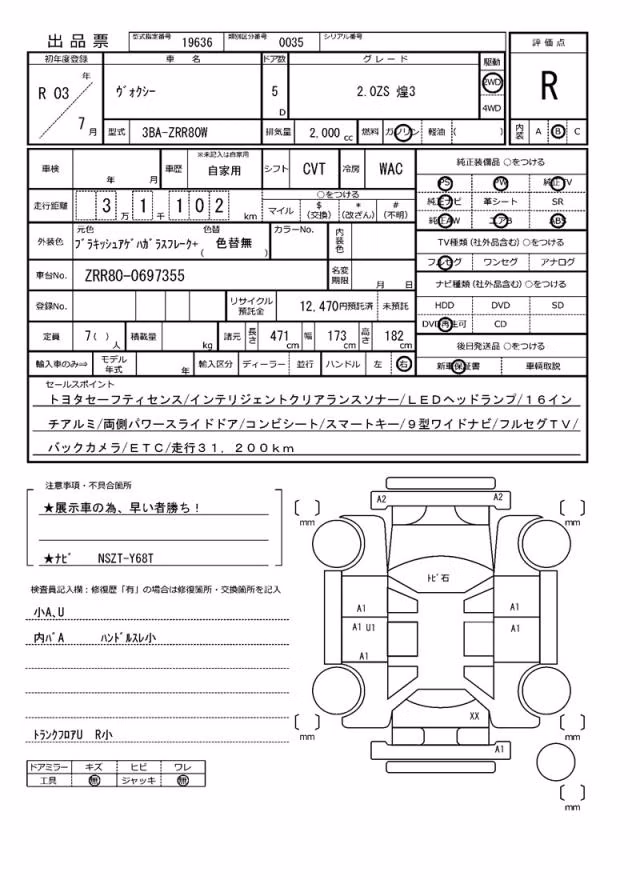 出品票 型式指定番号 19636 類別区分番号 0035 シリアル番号
評価点
R
内装 A B C
初年度登録 車名 ドア数 グレード 駆動
R 03 年 7 月 ヴォクシー 5 D 2.0ZS 煌3 2WD 4WD
型式 3BA-ZRR80W 排気量 2,000 cc 燃料 ガソリン 軽油 ( )
車検 年 月 車歴 ※未記入は自家用 自家用 シフト CVT 冷房 WAC
走行距離 3 万 1 千 1 0 2 km ○をつける マイル $ (交換) * (改ざん) # (不明)
外装色 元色 ブラキッシュアゲハガラスフレーク+ 色替 ( 色替無 ) カラーNo. 内装色
車台No. ZRR80-0697355 名変期限 月 日
登録No. リサイクル預託金 12,470円預託済 未預託
定員 7( ) 人 積載量 kg 諸元 長さ 471 cm 幅 173 cm 高さ 182 cm
輸入車のみ⇒ モデル年式 年 輸入区分 ディーラー 並行 ハンドル 左 右
純正装備品 ○をつける
PS PW 純正TV
純正ナビ 革シート SR
純正AW エアB ABS
TV種類 (社外品含む) ○をつける
フルセグ ワンセグ アナログ
ナビ種類 (社外品含む) ○をつける
HDD DVD SD
DVD再生可 CD
後日発送品 ○をつける
新車保証書 車輌取説
セールスポイント
トヨタセーフティセンス/インテリジェントクリアランスソナー/LEDヘッドランプ/16イン
チアルミ/両側パワースライドドア/コンビシート/スマートキー/9型ワイドナビ/フルセグTV/
バックカメラ/ETC/走行31,200km
注意事項・不具合箇所
★展示車の為、早い者勝ち!
★ナビ NSZT-Y68T
検査員記入欄：修復歴「有」の場合は修復箇所・交換箇所を記入
小A、U
内バA ハンドルスレ小
トランクフロアU R小
ドアミラー キズ ヒビ ワレ
工具 無 ジャッキ 無
A2 A2
mm mm
トビ石
A1 A1
A1 U1 A1
A1
XX
mm mm
A1
mm